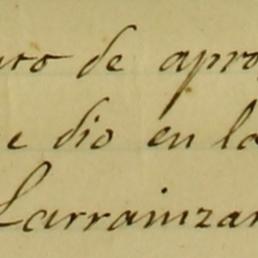 de apro
e dio en la
Larrainzar